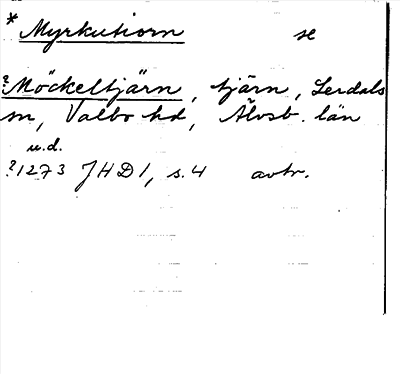 * Myrkutiorn se
?Möckeltjärn, tjärn, Lerdals
sn, Valbo hd, Älvsb. län
u.d.
?1273 JHD 1, s. 4 avtr.